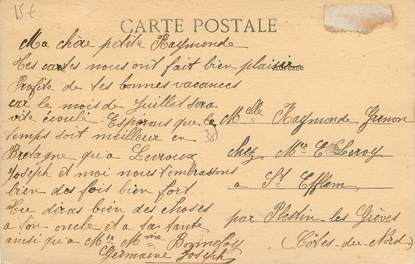 15 €
CARTE POSTALE
Adresse
Ma chère petite Raymonde
Tes cartes nous ont fait bien plaisir
Profite de tes bonnes vacances
car le mois de Juillet sera
vite écoulé. Espérons que le
temps soit meilleur en
Bretagne qu'à Levroux
Joseph et moi nous t'embrassons
bien des fois bien fort
Tu diras bien des choses
à ton oncle et à ta tante
ainsi qu'à Mr Mme Bonnefoy
Germaine Joseph
Melle Raymonde Grenon
chez Mr E. Leroy
à St Efflam
par Plestin les Grèves
(Côtes du Nord)